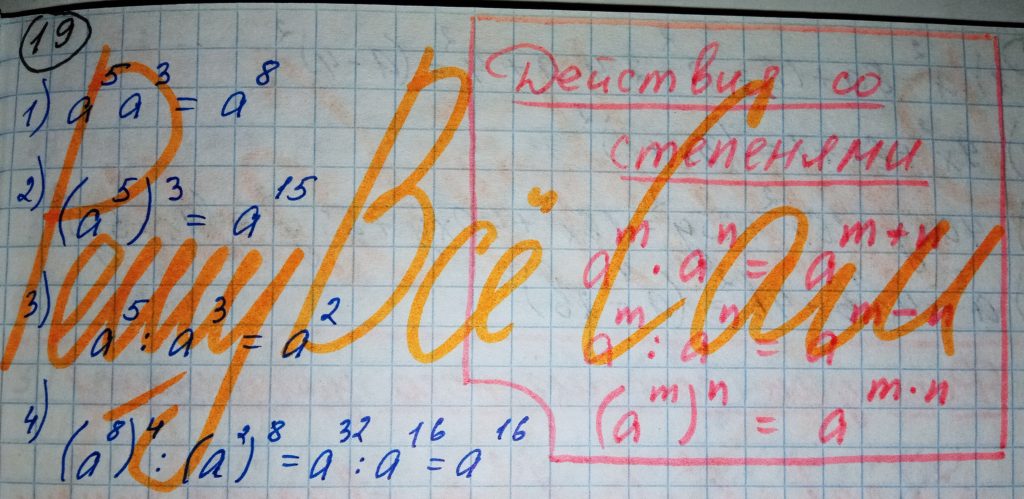 19
1) a⁵a³ = a⁸
2) (a⁵)³ = a¹⁵
3) a⁵ : a³ = a²
4) (a⁸)⁴ : (a²)⁸ = a³² : a¹⁶ = a¹⁶
Действия со
степенями
aᵐ · aⁿ = aᵐ⁺ⁿ
aᵐ : aⁿ = aᵐ⁻ⁿ
(aᵐ)ⁿ = aᵐ·ⁿ
Решу Всё Сам